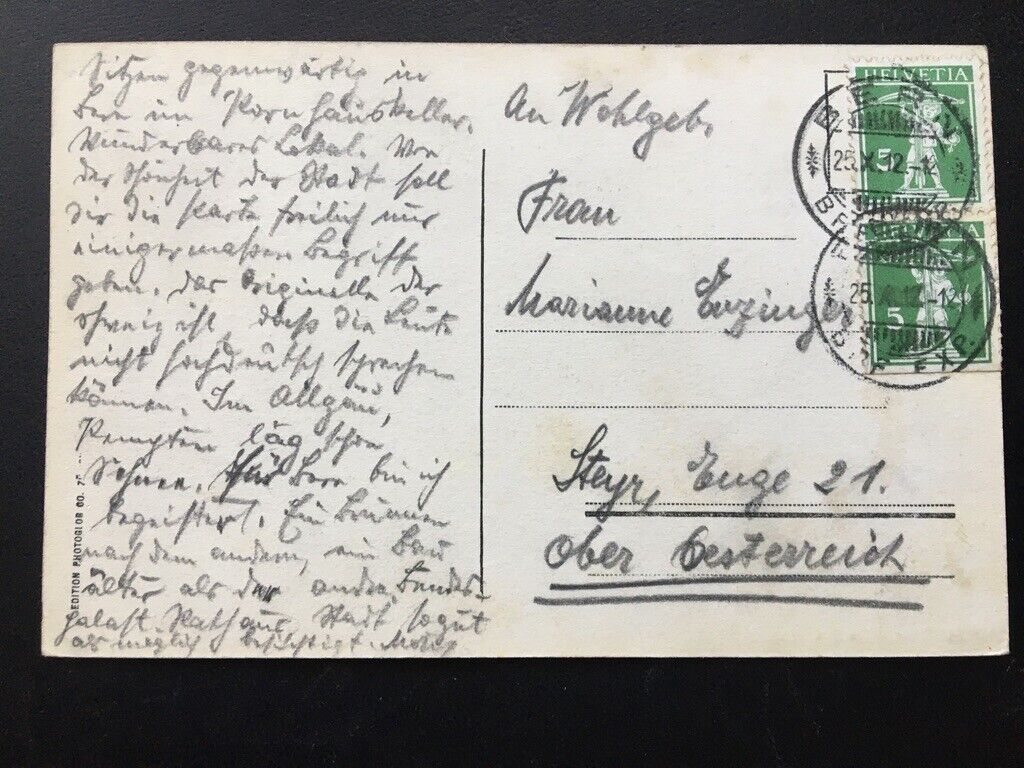 Sitzen gegenwärtig in
Bern im Kornhauskeller,
Wunderbares Lokal. Von
der Schönheit der Stadt soll
dir die Karte freilich nur
einigermaßen Begriff
geben. das Originelle der
Schweiz ist, dass die Leute
nicht hochdeutsch sprechen
können. Im Allgäu,
Kempten lag schon
Schnee. Bern bin ich
begeistert. Ein Brunnen
nach dem andern, ein Bau
älter als der andre, Bundes-
palast Rathaus, Stadt sogut
als möglich besichtigt.
An Wohlgeb.
Frau
Marianne Enzinger
Steyr, Enge 21.
Ober Oesterreich
EDITION PHOTOGLOB CO. Z
HELVETIA
5
BERN
25.X.12.-12
BRIEFEXP.
HELVETIA
5
BERN
25.X.12.-12
BRIEFEXP.